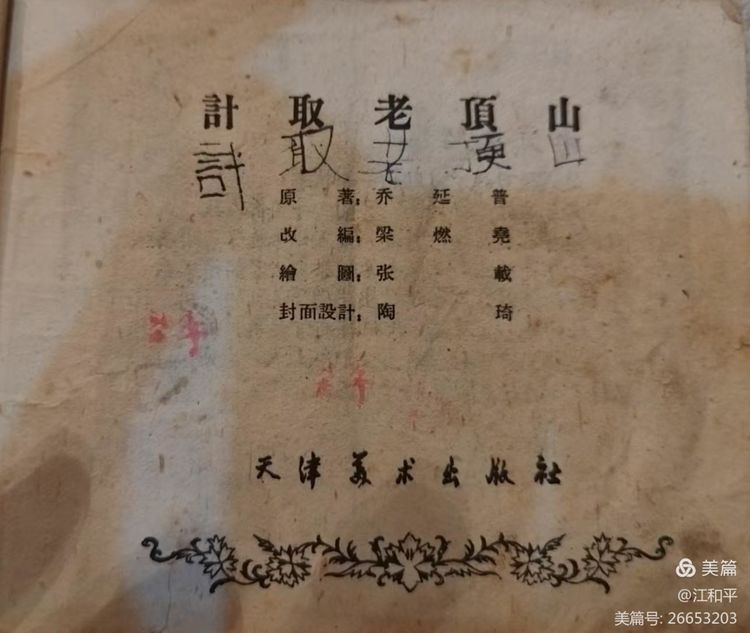 計取老頂山
計取老頂山
原著：乔延普
改編：梁燃堯
繪圖：张載
封面設計：陶琦
天津美术出版社
美篇
@江和平
美篇号: 26653203